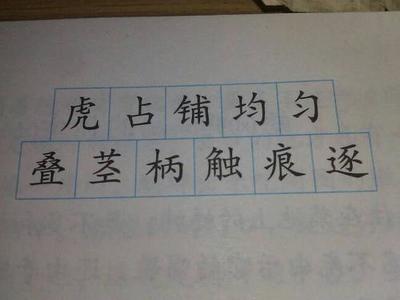 虎占铺均匀
叠茎柄触痕逐